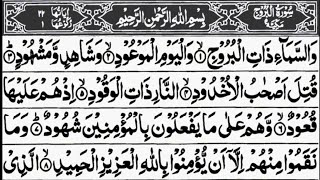 سُورَةُ الْبُرُوجِ
بِسْمِ اللهِ الرَّحْمٰنِ الرَّحِيْمِ
وَالسَّمَآءِ ذَاتِ الْبُرُوْجِ ۝١ وَالْيَوْمِ الْمَوْعُوْدِ ۝٢ وَشَاهِدٍ وَّمَشْهُوْدٍ ۝٣
قُتِلَ اَصْحٰبُ الْاُخْدُوْدِ ۝٤ النَّارِ ذَاتِ الْوَقُوْدِ ۝٥ اِذْ هُمْ عَلَيْهَا
قُعُوْدٌ ۝٦ وَّهُمْ عَلٰى مَا يَفْعَلُوْنَ بِالْمُؤْمِنِيْنَ شُهُوْدٌ ۝٧ وَمَا
نَقَمُوْا مِنْهُمْ اِلَّآ اَنْ يُّؤْمِنُوْا بِاللهِ الْعَزِيْزِ الْحَمِيْدِ ۝٨ الَّذِيْ